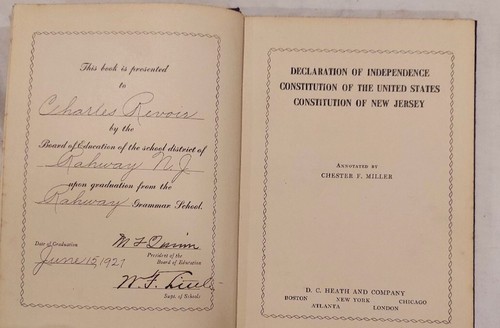 This book is presented
to
Charles Revoir
by the
Board of Education of the school district of
Rahway N.J.
upon graduation from the
Rahway Grammar School.
Date of Graduation
June 15, 1927
M F Quinn
President of the
Board of Education
W. F.
Supt. of Schools
DECLARATION OF INDEPENDENCE
CONSTITUTION OF THE UNITED STATES
CONSTITUTION OF NEW JERSEY
ANNOTATED BY
CHESTER F. MILLER
D. C. HEATH AND COMPANY
BOSTON NEW YORK CHICAGO
ATLANTA LONDON